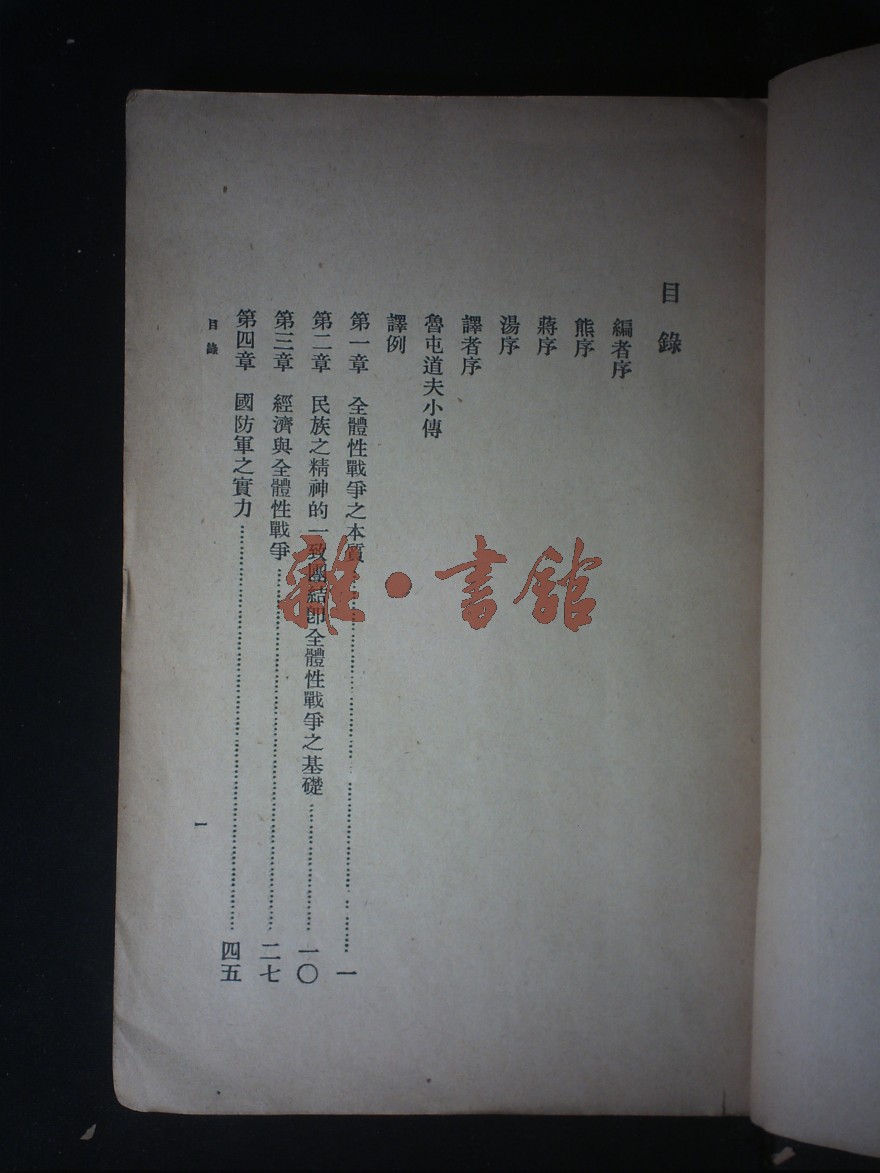 目錄
編者序
熊序
蔣序
湯序
譯者序
魯屯道夫小傳
譯例
第一章 全體性戰爭之本質……一
第二章 民族之精神的一致團結即全體性戰爭之基礎……一〇
第三章 經濟與全體性戰爭……二七
第四章 國防軍之實力……四五
目錄
一
雜·書館